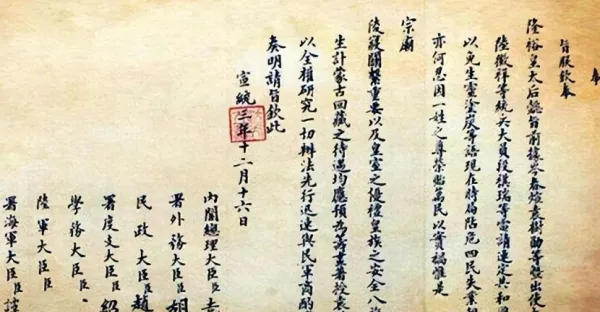 奉
旨朕欽奉
隆裕皇太后懿旨前據岑春煊袁樹勳等暨出使大
陸徵祥等統兵大員段祺瑞等電請速定共和國
以免生靈塗炭等語現在時局阽危四民失業朝
亦何忍因一姓之尊榮貽萬民以實禍惟是
宗廟
陵寢關繫重要以及皇室之優禮皇族之安全八旗
生計蒙古回藏之待遇均應預為籌畫著授袁
以全權研究一切辦法先行迅速與民軍商酌
奏明請旨欽此
宣統三年十二月十六日
內閣總理大臣臣袁
署外務大臣臣胡
民政大臣臣趙
署度支大臣臣紹
學務大臣臣
陸軍大臣臣
署海軍大臣臣譚